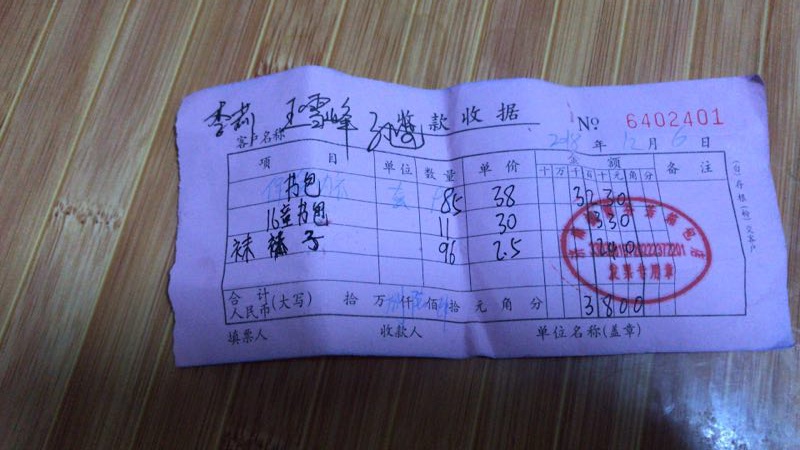 李莉 王雪峰
收款收据 No 6402401
客户名称 2018 年 12 月 6 日
项目 单位 数量 单价 金额 备注
十 万 千 百 十 元 角 分
书包 85 38 3230
16童书包 11 30 330
袜 袜子 96 2.5 240
发票专用章
合计 人民币(大写) 拾 万 仟 佰 拾 元 角 分 3800
填票人 收款人 单位名称(盖章)